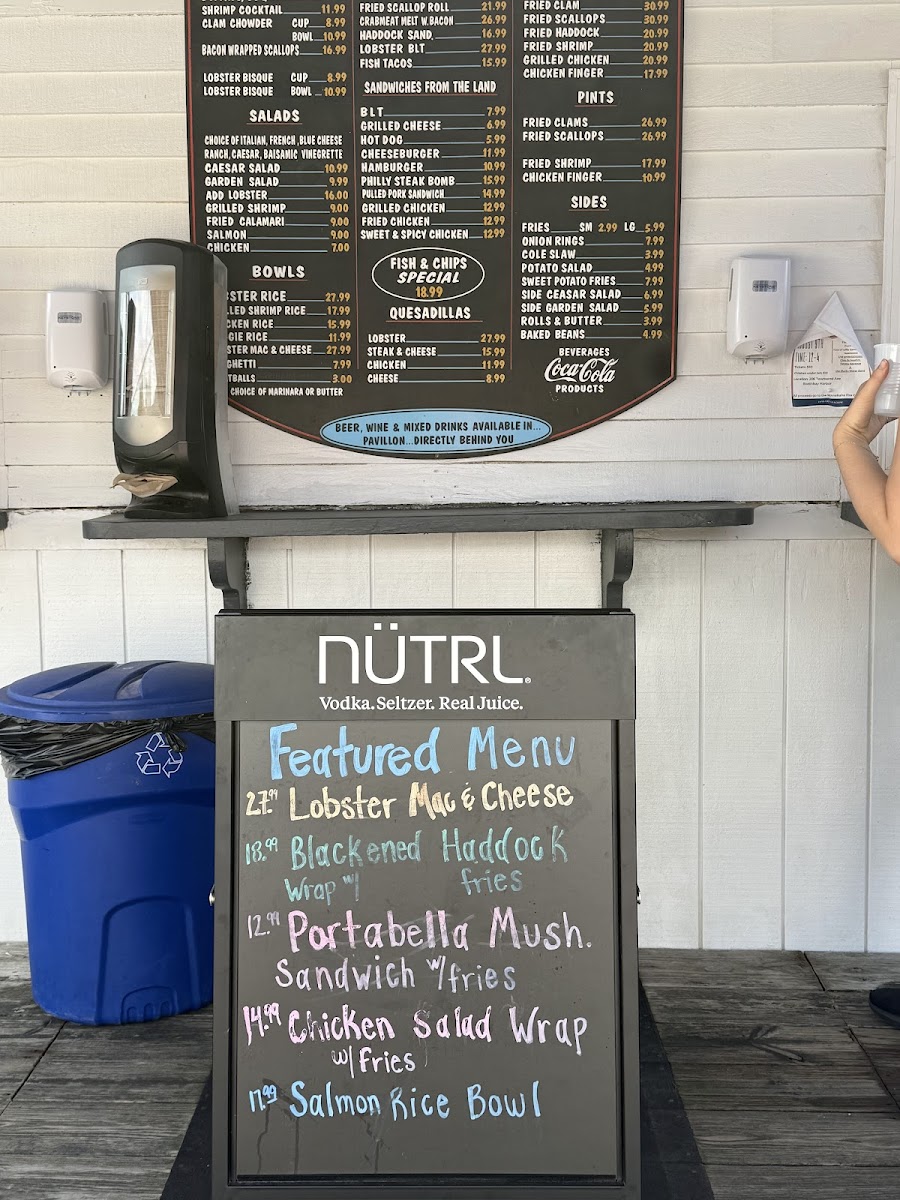 SHRIMP COCKTAIL 11.99
CLAM CHOWDER CUP 8.99
BOWL 10.99
BACON WRAPPED SCALLOPS 16.99
LOBSTER BISQUE CUP 8.99
LOBSTER BISQUE BOWL 10.99
SALADS
CHOICE OF ITALIAN, FRENCH, BLUE CHEESE
RANCH, CAESAR, BALSAMIC VINEGRETTE
CAESAR SALAD 10.99
GARDEN SALAD 9.99
ADD LOBSTER 16.00
GRILLED SHRIMP 9.00
FRIED CALAMARI 9.00
SALMON 9.00
CHICKEN 7.00
BOWLS
BSTER RICE 27.99
LLED SHRIMP RICE 17.99
CKEN RICE 15.99
GGIE RICE 11.99
STER MAC & CHEESE 27.99
GHETTI 7.99
TBALLS 3.00
CHOICE OF MARINARA OR BUTTER
FRIED SCALLOP ROLL 21.99
CRABMEAT MELT W.BACON 26.99
HADDOCK SAND. 16.99
LOBSTER BLT 27.99
FISH TACOS 15.99
SANDWICHES FROM THE LAND
BLT 7.99
GRILLED CHEESE 6.99
HOT DOG 5.99
CHEESEBURGER 11.99
HAMBURGER 10.99
PHILLY STEAK BOMB 15.99
PULLED PORK SANDWICH 14.99
GRILLED CHICKEN 12.99
FRIED CHICKEN 12.99
SWEET & SPICY CHICKEN 12.99
FISH & CHIPS
SPECIAL
18.99
QUESADILLAS
LOBSTER 27.99
STEAK & CHEESE 15.99
CHICKEN 11.99
CHEESE 8.99
FRIED CLAM 30.99
FRIED SCALLOPS 30.99
FRIED HADDOCK 20.99
FRIED SHRIMP 20.99
GRILLED CHICKEN 20.99
CHICKEN FINGER 17.99
PINTS
FRIED CLAMS 26.99
FRIED SCALLOPS 26.99
FRIED SHRIMP 17.99
CHICKEN FINGER 10.99
SIDES
FRIES SM 2.99 LG 5.99
ONION RINGS 7.99
COLE SLAW 3.99
POTATO SALAD 4.99
SWEET POTATO FRIES 7.99
SIDE CEASAR SALAD 6.99
SIDE GARDEN SALAD 5.99
ROLLS & BUTTER 3.99
BAKED BEANS 4.99
BEVERAGES
Coca-Cola
PRODUCTS
BEER, WINE & MIXED DRINKS AVAILABLE IN...
PAVILLON...DIRECTLY BEHIND YOU
NÜTRL
Vodka. Seltzer. Real Juice.
Featured Menu
27.99 Lobster Mac & Cheese
18.99 Blackened Haddock
Wrap w/ fries
12.99 Portabella Mush.
Sandwich w/fries
14.99 Chicken Salad Wrap
w/ Fries
17.99 Salmon Rice Bowl